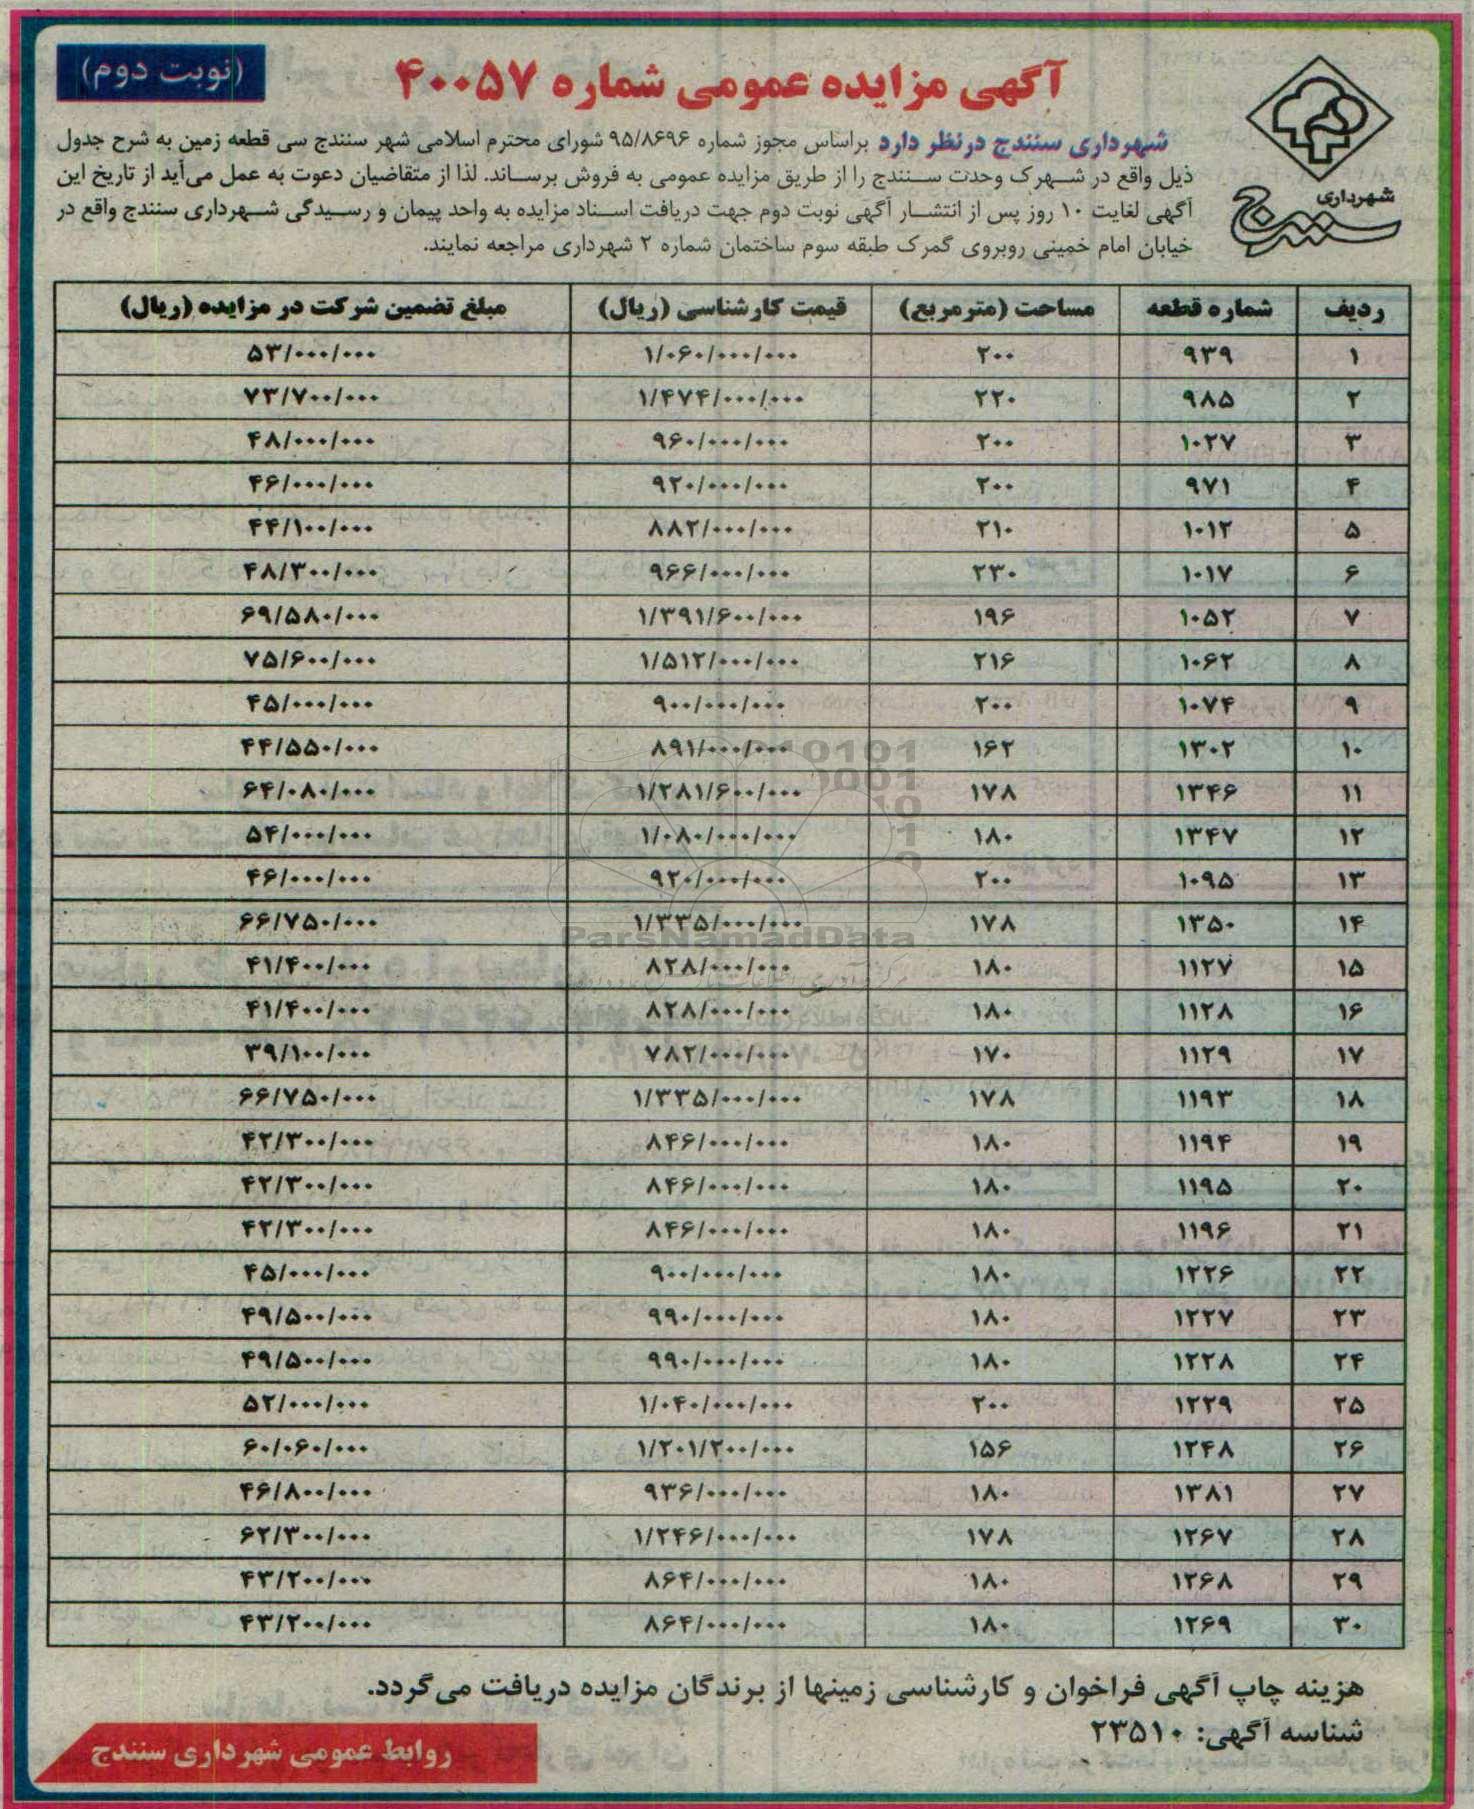 آگهی مزایده عمومی شماره ۴۰۰۵۷
(نوبت دوم)
شهرداری
سنندج
شهرداری سنندج درنظر دارد براساس مجوز شماره ۹۵/۸۶۹۶ شورای محترم اسلامی شهر سنندج سی قطعه زمین به شرح جدول
ذیل واقع در شهرک وحدت سنندج را از طریق مزایده عمومی به فروش برساند. لذا از متقاضیان دعوت به عمل می‌آید از تاریخ این
آگهی لغایت ۱۰ روز پس از انتشار آگهی نوبت دوم جهت دریافت اسناد مزایده به واحد پیمان و رسیدگی شهرداری سنندج واقع در
خیابان امام خمینی روبروی گمرک طبقه سوم ساختمان شماره ۲ شهرداری مراجعه نمایند.
ردیف شماره قطعه مساحت (مترمربع) قیمت کارشناسی (ریال) مبلغ تضمین شرکت در مزایده (ریال)
۱ ۹۳۹ ۲۰۰ ۱/۰۶۰/۰۰۰/۰۰۰ ۵۳/۰۰۰/۰۰۰
۲ ۹۸۵ ۲۲۰ ۱/۴۷۴/۰۰۰/۰۰۰ ۷۳/۷۰۰/۰۰۰
۳ ۱۰۲۷ ۲۰۰ ۹۶۰/۰۰۰/۰۰۰ ۴۸/۰۰۰/۰۰۰
۴ ۹۷۱ ۲۰۰ ۹۲۰/۰۰۰/۰۰۰ ۴۶/۰۰۰/۰۰۰
۵ ۱۰۱۲ ۲۱۰ ۸۸۲/۰۰۰/۰۰۰ ۴۴/۱۰۰/۰۰۰
۶ ۱۰۱۷ ۲۳۰ ۹۶۶/۰۰۰/۰۰۰ ۴۸/۳۰۰/۰۰۰
۷ ۱۰۵۲ ۱۹۶ ۱/۳۹۱/۶۰۰/۰۰۰ ۶۹/۵۸۰/۰۰۰
۸ ۱۰۶۲ ۲۱۶ ۱/۵۱۲/۰۰۰/۰۰۰ ۷۵/۶۰۰/۰۰۰
۹ ۱۰۷۴ ۲۰۰ ۹۰۰/۰۰۰/۰۰۰ ۴۵/۰۰۰/۰۰۰
۱۰ ۱۳۰۲ ۱۶۲ ۸۹۱/۰۰۰/۰۰۰ ۴۴/۵۵۰/۰۰۰
۱۱ ۱۳۴۶ ۱۷۸ ۱/۲۸۱/۶۰۰/۰۰۰ ۶۴/۰۸۰/۰۰۰
۱۲ ۱۳۴۷ ۱۸۰ ۱/۰۸۰/۰۰۰/۰۰۰ ۵۴/۰۰۰/۰۰۰
۱۳ ۱۰۹۵ ۲۰۰ ۹۲۰/۰۰۰/۰۰۰ ۴۶/۰۰۰/۰۰۰
۱۴ ۱۳۵۰ ۱۷۸ ۱/۳۳۵/۰۰۰/۰۰۰ ۶۶/۷۵۰/۰۰۰
ParsNamadData
۱۵ ۱۱۲۷ ۱۸۰ ۸۲۸/۰۰۰/۰۰۰ ۴۱/۴۰۰/۰۰۰
۱۶ ۱۱۲۸ ۱۸۰ ۸۲۸/۰۰۰/۰۰۰ ۴۱/۴۰۰/۰۰۰
۱۷ ۱۱۲۹ ۱۷۰ ۷۸۲/۰۰۰/۰۰۰ ۳۹/۱۰۰/۰۰۰
۱۸ ۱۱۹۳ ۱۷۸ ۱/۳۳۵/۰۰۰/۰۰۰ ۶۶/۷۵۰/۰۰۰
۱۹ ۱۱۹۴ ۱۸۰ ۸۴۶/۰۰۰/۰۰۰ ۴۲/۳۰۰/۰۰۰
۲۰ ۱۱۹۵ ۱۸۰ ۸۴۶/۰۰۰/۰۰۰ ۴۲/۳۰۰/۰۰۰
۲۱ ۱۱۹۶ ۱۸۰ ۸۴۶/۰۰۰/۰۰۰ ۴۲/۳۰۰/۰۰۰
۲۲ ۱۲۲۶ ۱۸۰ ۹۰۰/۰۰۰/۰۰۰ ۴۵/۰۰۰/۰۰۰
۲۳ ۱۲۲۷ ۱۸۰ ۹۹۰/۰۰۰/۰۰۰ ۴۹/۵۰۰/۰۰۰
۲۴ ۱۲۲۸ ۱۸۰ ۹۹۰/۰۰۰/۰۰۰ ۴۹/۵۰۰/۰۰۰
۲۵ ۱۲۲۹ ۲۰۰ ۱/۰۴۰/۰۰۰/۰۰۰ ۵۲/۰۰۰/۰۰۰
۲۶ ۱۲۴۸ ۱۵۶ ۱/۲۰۱/۲۰۰/۰۰۰ ۶۰/۰۶۰/۰۰۰
۲۷ ۱۳۸۱ ۱۸۰ ۹۳۶/۰۰۰/۰۰۰ ۴۶/۸۰۰/۰۰۰
۲۸ ۱۲۶۷ ۱۷۸ ۱/۲۴۶/۰۰۰/۰۰۰ ۶۲/۳۰۰/۰۰۰
۲۹ ۱۲۶۸ ۱۸۰ ۸۶۴/۰۰۰/۰۰۰ ۴۳/۲۰۰/۰۰۰
۳۰ ۱۲۶۹ ۱۸۰ ۸۶۴/۰۰۰/۰۰۰ ۴۳/۲۰۰/۰۰۰
هزینه چاپ آگهی فراخوان و کارشناسی زمینها از برندگان مزایده دریافت می‌گردد.
شناسه آگهی: ۲۳۵۱۰
روابط عمومی شهرداری سنندج